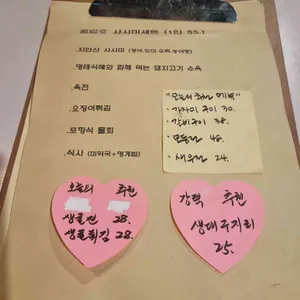 사시미세트 (1인 55.)
.자연산 사시미 (광어,
.명태식해와 함께 먹는 돼지고기 수육
.육전
.오징어튀김
.포항식 물회
.식사 (미역국+멍게밥)
"오늘의 추천 메뉴"
· 가자미 구이 30.
· 갈비구이 38.
· 모둠전 48.
· 새우전 24.
오늘의 추천
생굴전 28.
생굴튀김 28.
강력 추천
생대구지리
25.